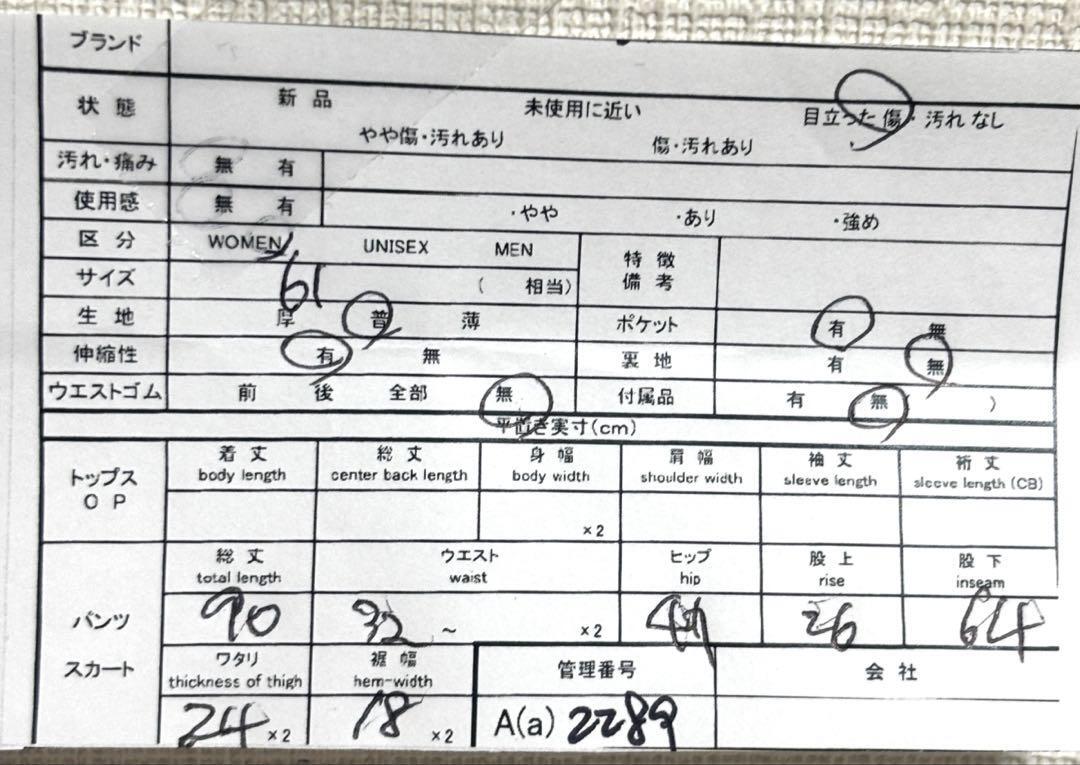 ブランド
状態 新品 未使用に近い 目立った傷・汚れなし
やや傷・汚れあり 傷・汚れあり
汚れ・痛み 無 有
使用感 無 有 ・やや ・あり ・強め
区分 WOMEN UNISEX MEN 特徴備考
サイズ 61 ( 相当)
生地 厚 普 薄 ポケット 有 無
伸縮性 有 無 裏地 有 無
ウエストゴム 前 後 全部 無 付属品 有 無 )
平置き実寸(cm)
トップス OP 着丈 総丈 身幅 肩幅 袖丈 裄丈
body length center back length body width shoulder width sleeve length sleeve length (CB)
×2
総丈 ウエスト ヒップ 股上 股下
total length waist hip rise inseam
パンツ 90 32 ~ ×2 26 64
スカート ワタリ 裾幅 管理番号 会社
thickness of thigh hem-width
24 ×2 18 ×2 A(a) 2289